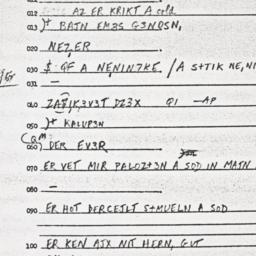 012 AZ ER KRIKT A
013 )+ BAJN EM3S G3N0SN,
020 NEZER
030 $ GF A NENIN7KE / A S+TIK NE,NI
031 —
040 QI —AP
050 )+ KALUP3N
060 ) DER EV3R
070 ER VET MIR PALOZ+3N A SOD IN MAJN
080 —
090 ER HOT DERCEJLT S+MUELN A SOD
100 ER KEN AJX NIT HERN, GUT